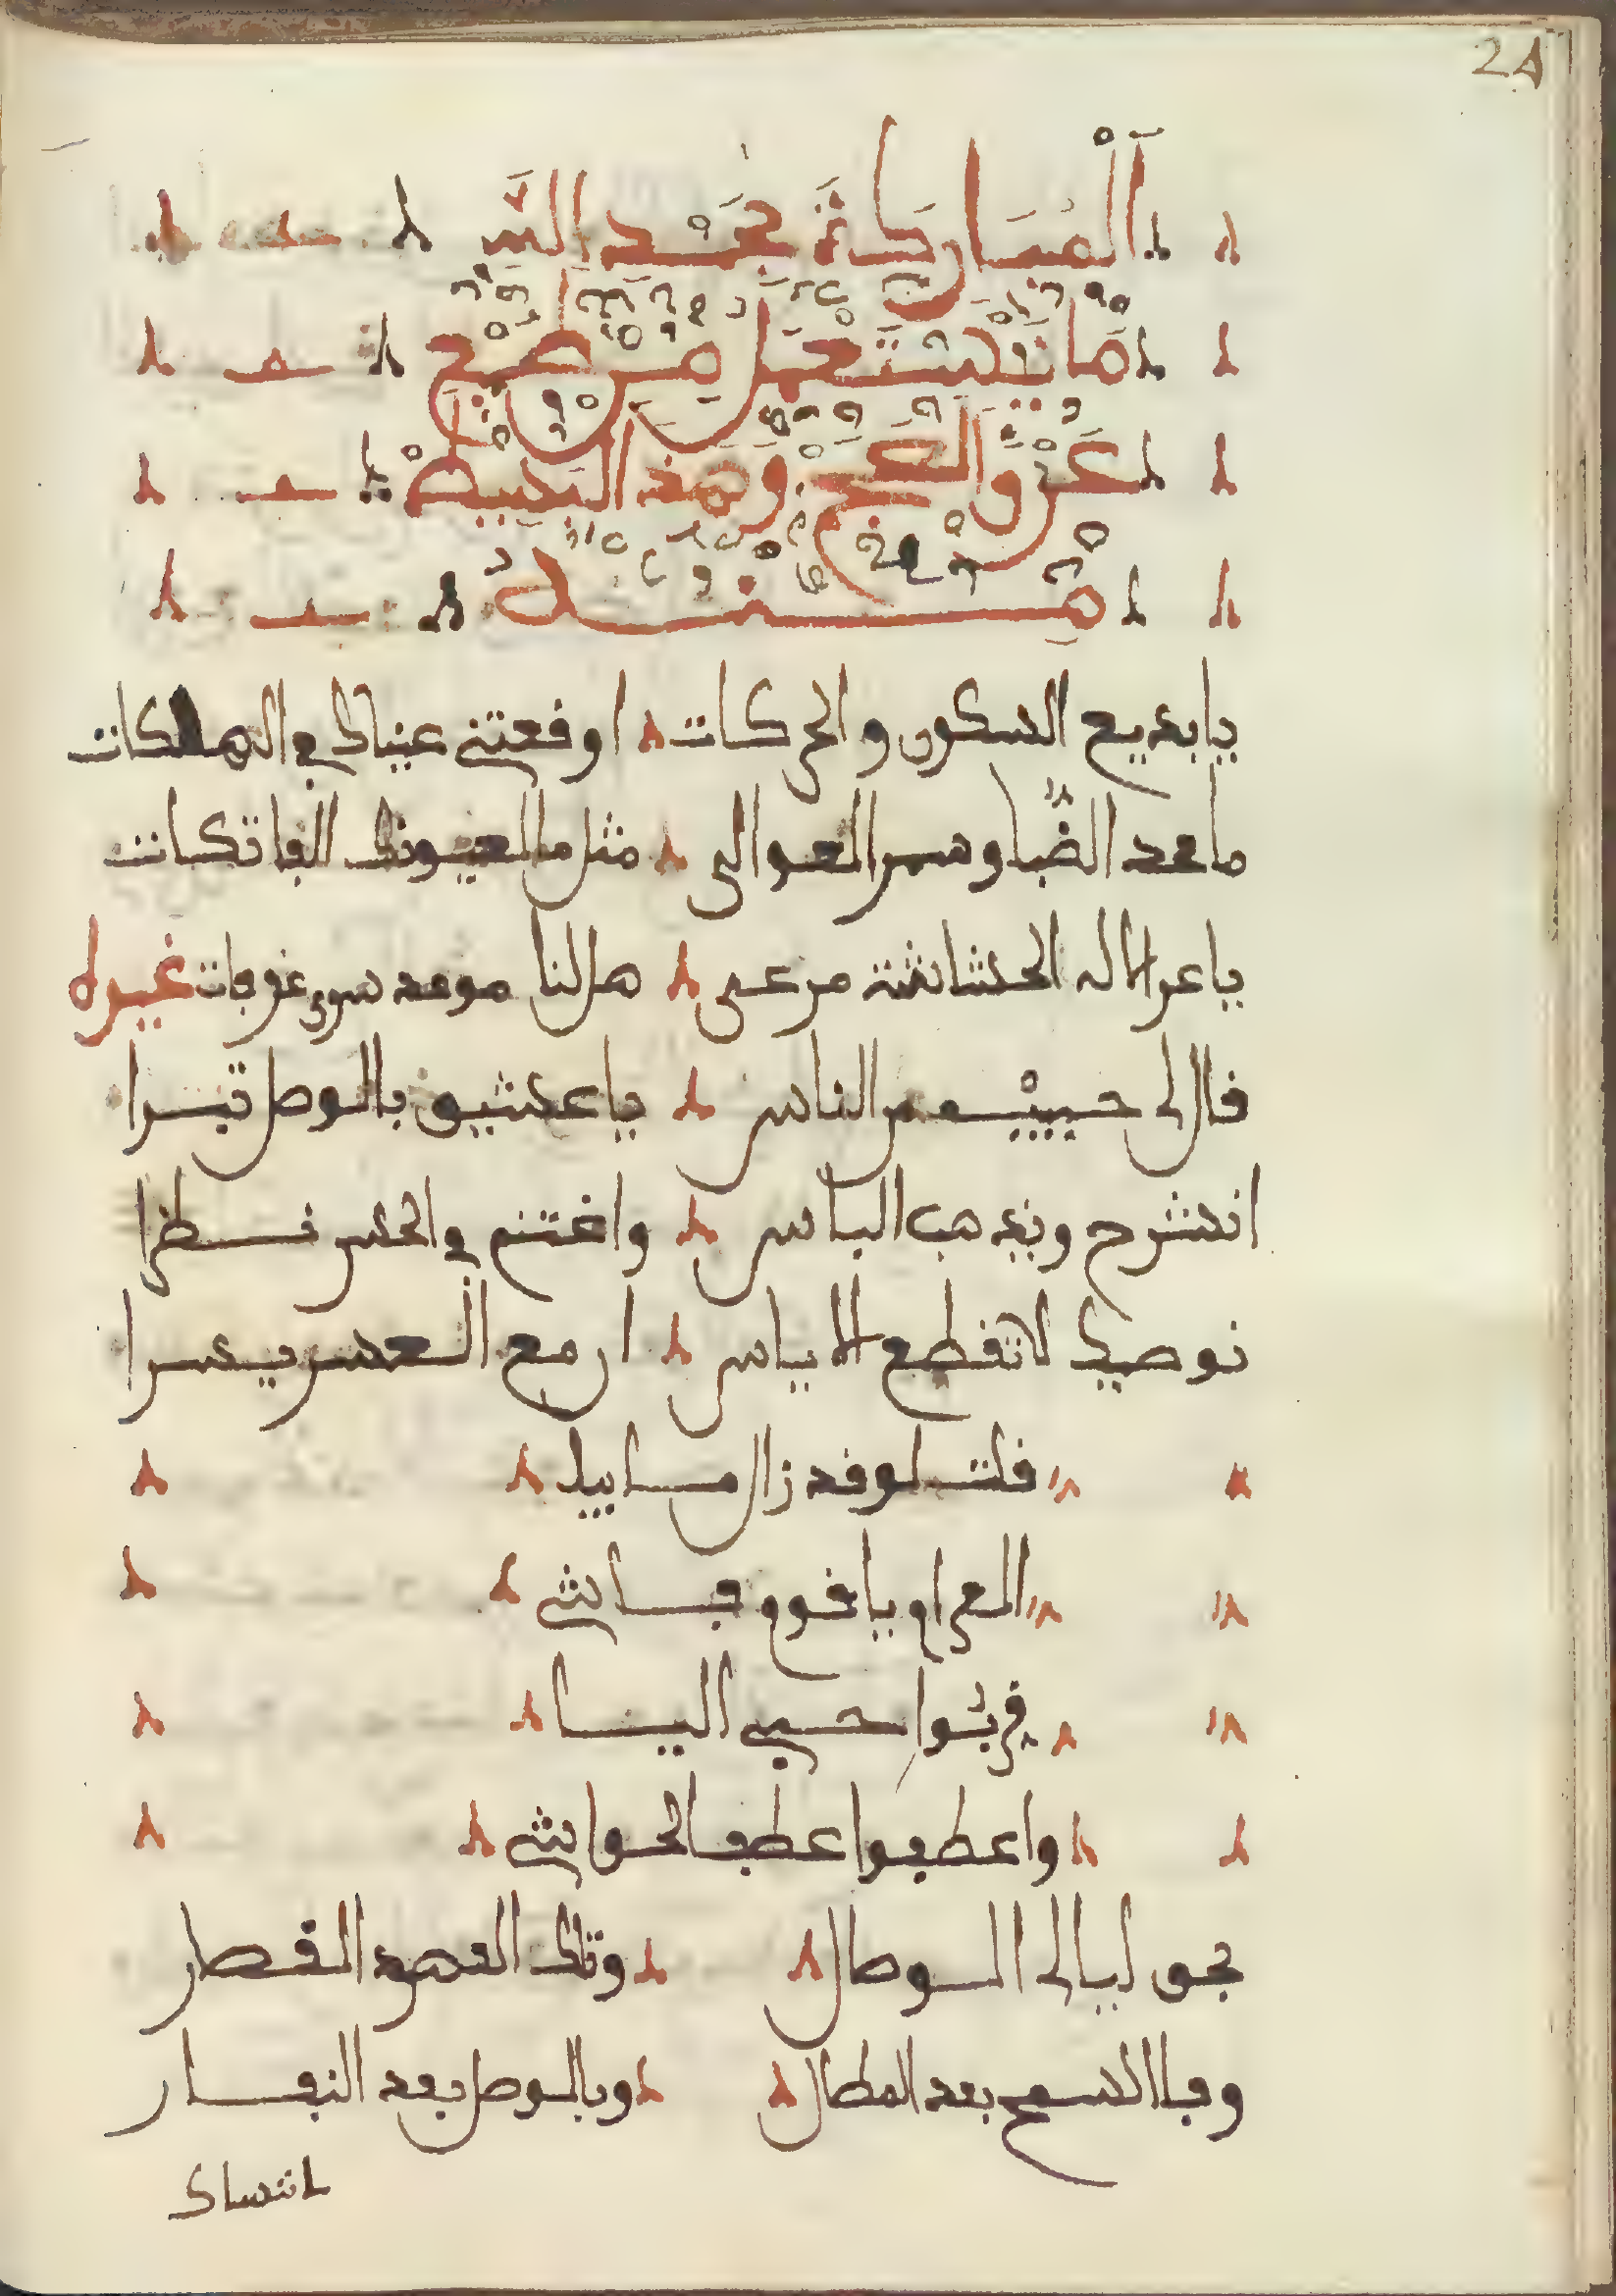 28
اَلْمُبَارَكَةَ بحَمْدِ اللَّهِ
مَا يُسْتَعْمَلُ مِنْ طَبْعِ
عَرْوِ الْعَجَمِ وَهَذِهِ الْبَيْطَ
مِنْهُ
يا بديع السكون والحركات اوقعتني عيناك في الهلكات
ما محد الضبا وسمر العوالي مثل ما للعيونك الفاتكات
يا غزالا له الحشاشة مرعى هل لنا موعد سوى عرفات غيره
قال لي حبيب من الناس يا عشيق بالوصل تبرا
انشرح ويذهب الباس واغتنم في الحسن نظرا
نوصيك لا تقطع الاياس ان مع العسر يسرا
قلت لو قد زال ما بيا
الغرام يا قوم فاش
قربوا حبي الينا
واعطفوا عطف الحواش
بحق ليالي الوصال وتلك العهود القصار
وبالسمح بعد المطال وبالوصل بعد النفار
انساك